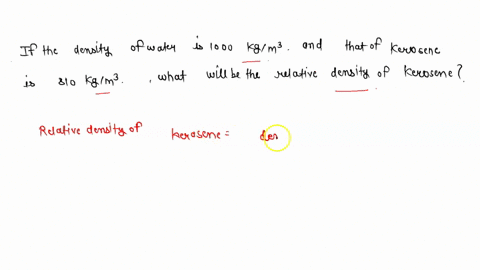 If the density of water is 1000 kg/m³. and that of kerosene
is 810 kg/m³. , what will be the relative density of kerosene?
Relative density of kerosene = den